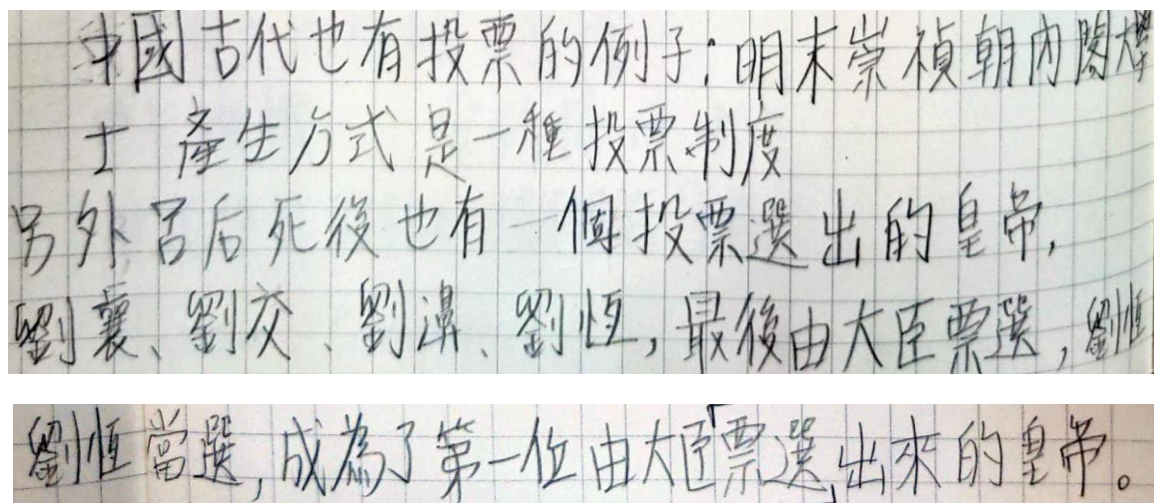 中國古代也有投票的例子:明末崇禎朝內閣大學
士 產生方式是一種投票制度
另外呂后死後也有一個投票選出的皇帝,
劉襄、劉交、劉濞、劉恆,最後由大臣票選,劉恆
劉恆當選,成為了第一位由大臣票選出來的皇帝。